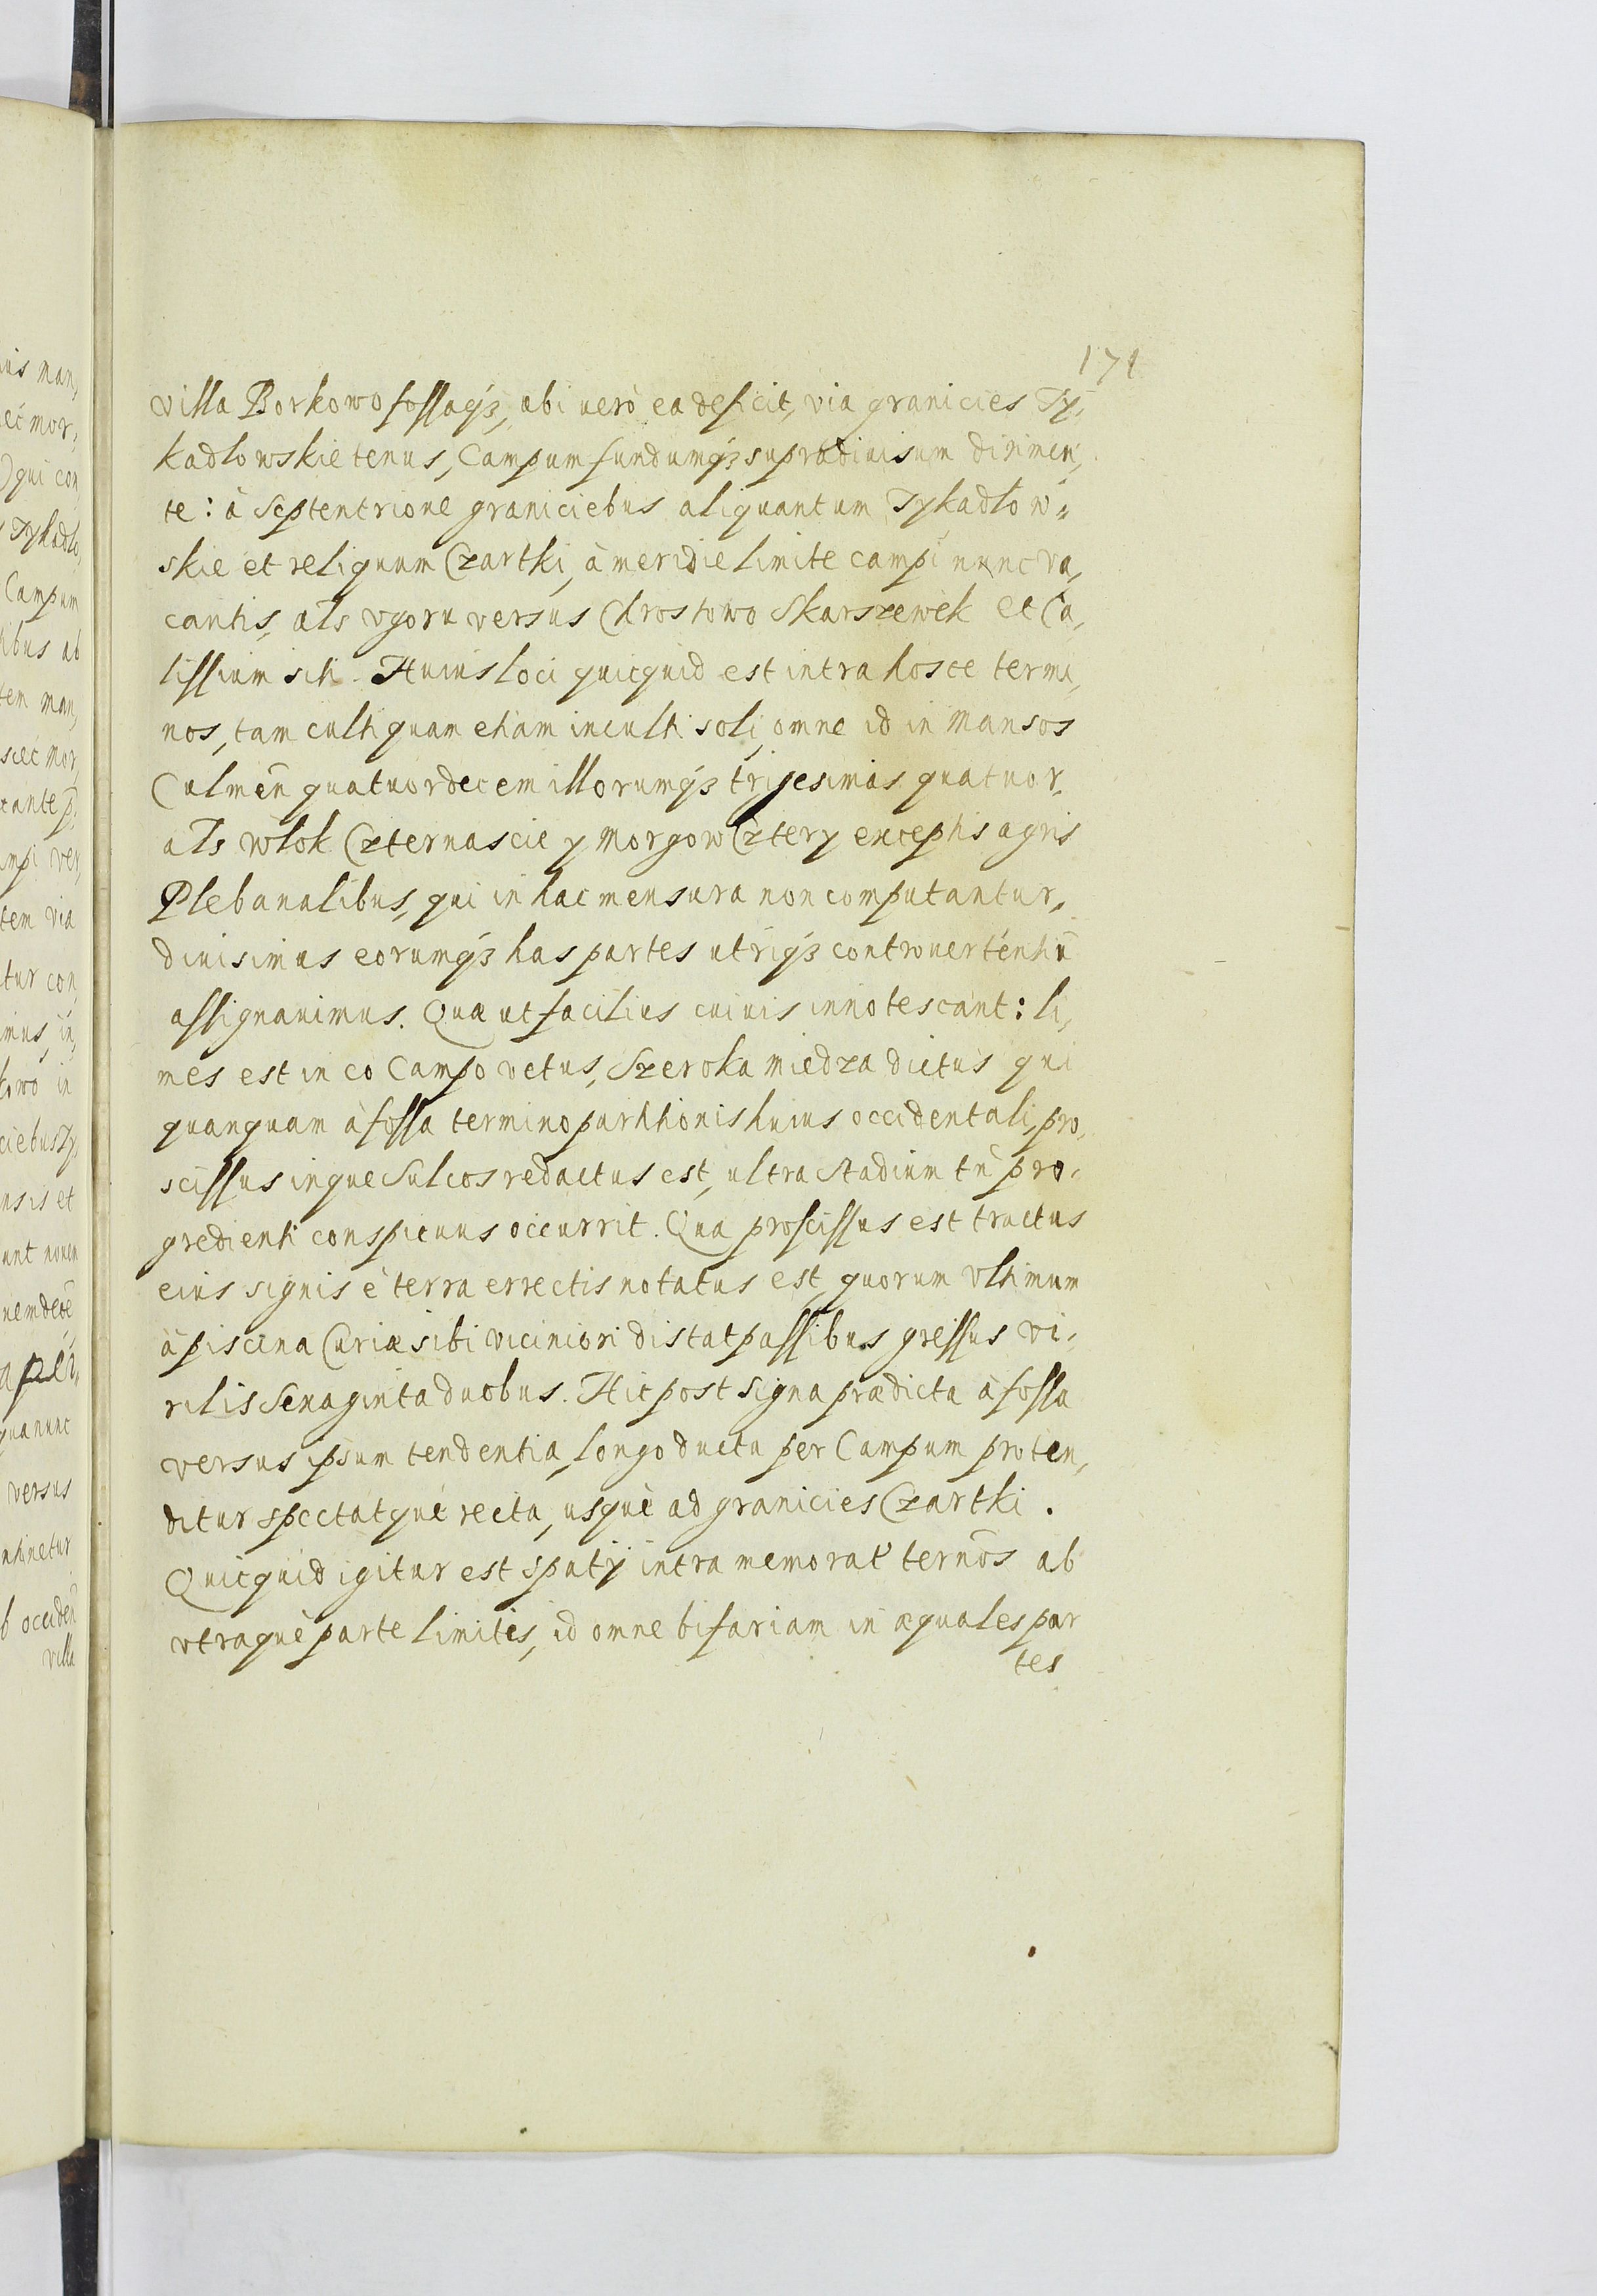 171
villa Borkowo fossaq3, ubi uerò ea deficit, via granicies Ty,
kadłowskie tenus, Campum fundumq3 supradiuisum dirimen,
te: à Septentrione graniciebus aliquantum Tykadłow„
skie et reliquum Czartki, à meridie limite campi nunc va,
cantis, als vgoru versus Chrostowo Skarszewek et Ca,
lissium siti. Huius loci quicquid est intra hosce termi,
nos, tam culti quam etiam inculti soli, omne id in Mansos
Culmēn quatuordecem illorumq3 trigesimas quatuor,
als włok Czternascie y Morgow Cztery exceptis agris
Plebanalibus, qui in hac mensura non computantur,
diuisimus eorumq3 has partes utriq3 controuertentiū
assignauimus. Quæ ut facilius cuiuis innotescant: li,
mes est in eo Campo vetus, Szeroka miedza dictus qui
quanquam à fossa termino partitionis huius occidentali, pro,
scissus inque Sulcos redactus est, ultra Stadium tñ pro,
gredienti conspicuus occurrit. Qua proscissus est tractus
eius signis è terra errectis notatus est, quorum vltimum
à piscina Curiæ sibi viciniori distat passibus gressus vi,
rilis Senaginta duobus. Hic post signa prædicta à fossa
versus ipsum tendentia, longo ductu per Campum proten,
ditur spectatquè recta, usquè ad granicies Czartki.
Quicquid igitur est spatij intra memorat ternōs ab
vtraquè parte limites, id omne bifariam in æquales par
tes